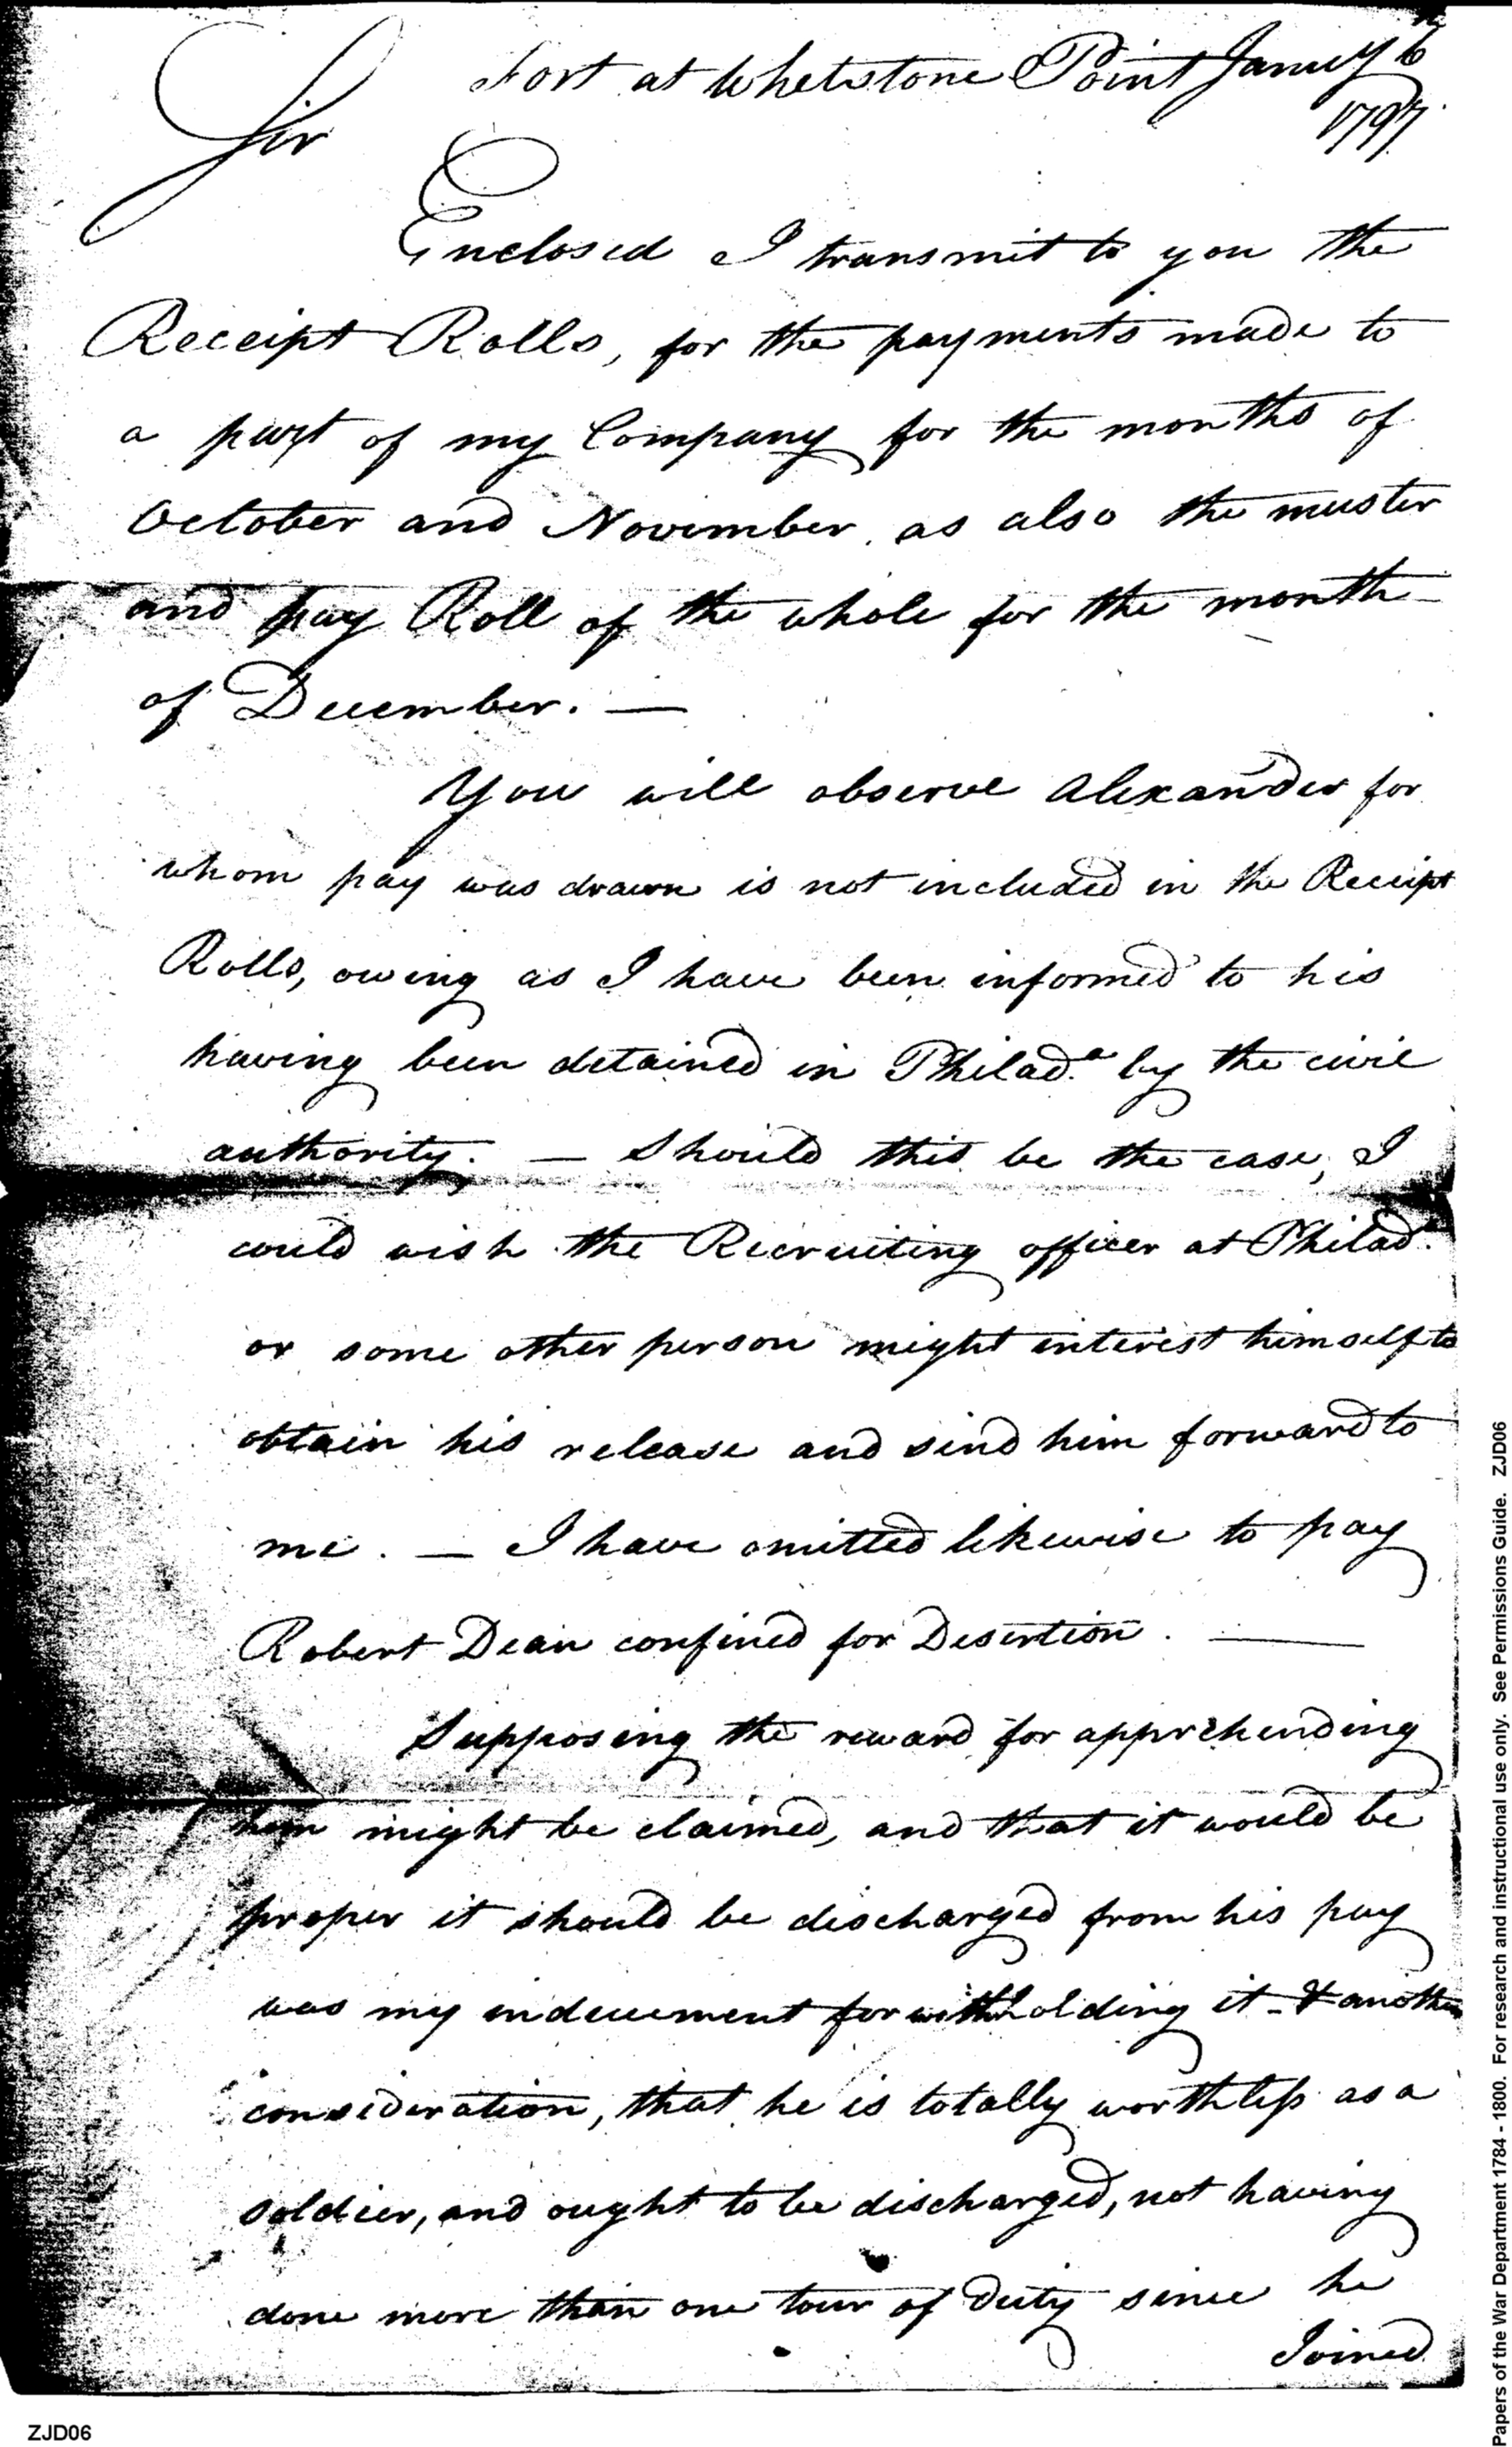 Fort at Whetstone Point Janury 6
1797.
Sir
Enclosed I transmit to you the
Receipt Rolls, for the payments made to
a part of my Company for the months of
October and November, as also the muster
and pay Roll of the whole for the month
of December. —
You will observe Alexander for
whom pay was drawn is not included in the Receipt
Rolls, owing as I have been informed to his
having been detained in Philad.a by the civil
authority. — Should this be the case, I
could wish the Recruiting officer at Philad.a
or some other person might interest himself to
obtain his release and send him forward to
me. — I have omitted likewise to pay
Robert Dean confined for Desertion. —
Supposing the reward for apprehending
him might be claimed, and that it would be
proper it should be discharged from his pay
was my inducement for withholding it - & another
consideration, that he is totally worthless as a
soldier, and ought to be discharged, not having
done more than one tour of Duty since he
Joined
ZJD06
Papers of the War Department 1784 - 1800. For research and instructional use only. See Permissions Guide. ZJD06